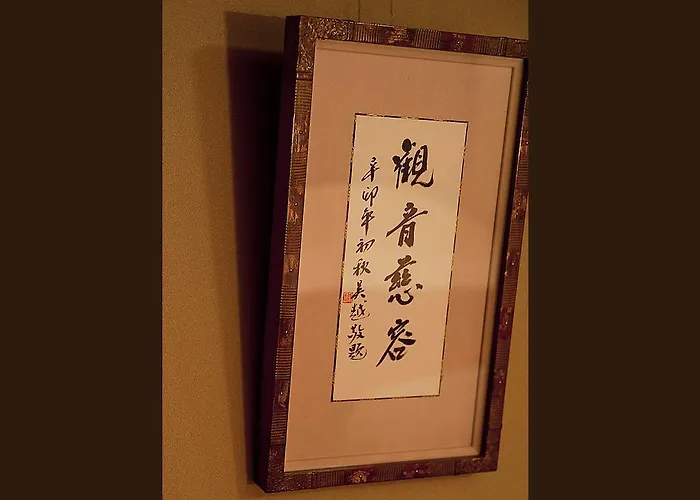 觀音慈容
辛卯年初秋吳越敬題